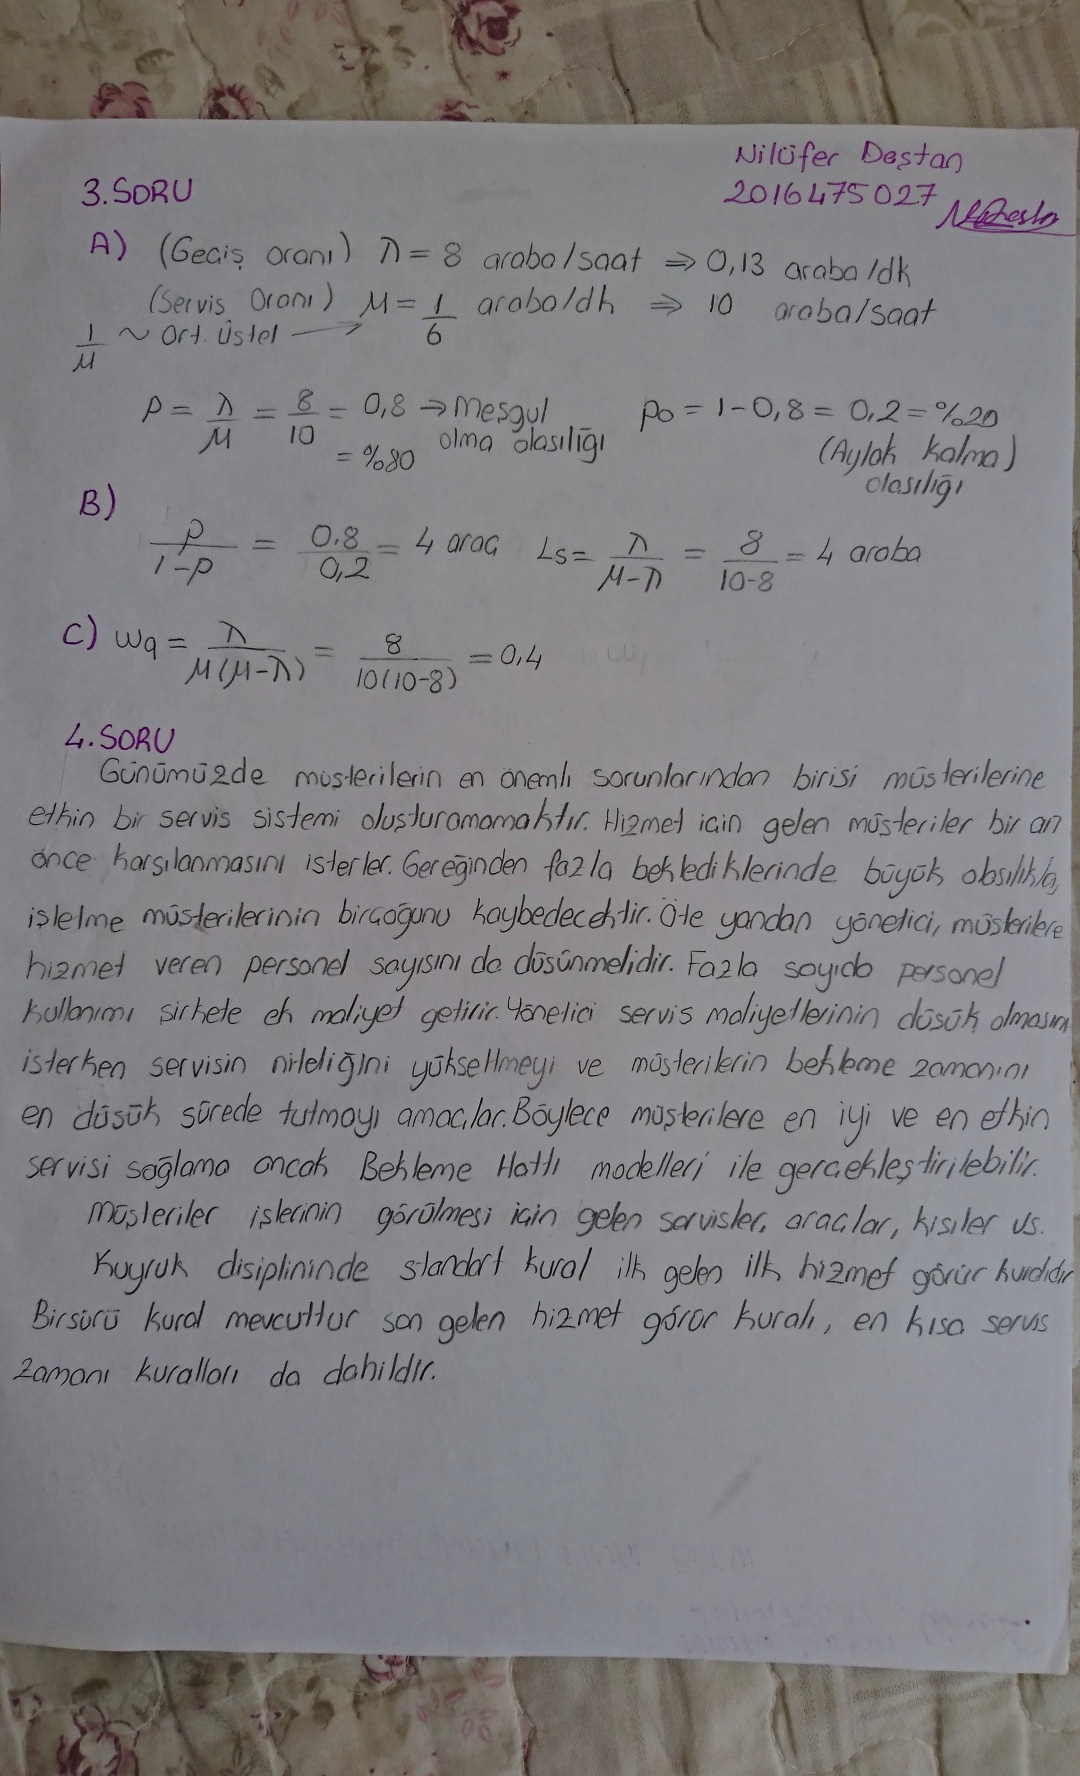 Nilüfer Destan
3.SORU
2016475027
A) (Geciş oranı) λ = 8 araba/saat ⇒ 0,13 araba/dk
(Servis Oranı) μ = 1/6 araba/dk ⇒ 10 araba/saat
1/μ ~ Ort. Üstel →
ρ = λ/μ = 8/10 = 0,8 → Mesgul olma olasılığı p0 = 1-0,8 = 0,2 = %20
= %80 (Aylak kalma) olasılığı
B)
ρ/1-ρ = 0.8/0,2 = 4 arac Ls = λ/μ-λ = 8/10-8 = 4 araba
C) wq = λ/μ(μ-λ) = 8/10(10-8) = 0,4
4.SORU
Günümüzde müsterilerin en önemli sorunlarından birisi müsterilerine
etkin bir servis sistemi olusturamamaktır. Hizmet icin gelen müsteriler bir an
önce karşılanmasını isterler. Gereğinden fazla beklediklerinde büyük obsılıkla,
işletme müsterilerinin bircoğunu kaybedecektir. Öte yandan yönetici, müsterilere
hizmet veren personel sayısını da düsünmelidir. Fazla sayıda personel
kullanımı sirkete ek maliyet getirir. Yönetici servis maliyetlerinin düsük olmasını
isterken servisin niteliğini yükseltmeyi ve müsterilerin bekleme zamanını
en düsük sürede tutmayı amaclar. Böylece müşterilere en iyi ve en etkin
servisi sağlama ancak Bekleme Hattı modelleri ile gercekleştirilebilir.
Müşteriler işlerinin görülmesi icin gelen servisler, araclar, kisiler vs.
Kuyruk disiplininde standart kural ilk gelen ilk hizmet görür kuralıdır
Birsürü kural mevcuttur son gelen hizmet görür kuralı, en kısa servis
zamanı kuralları da dahildir.